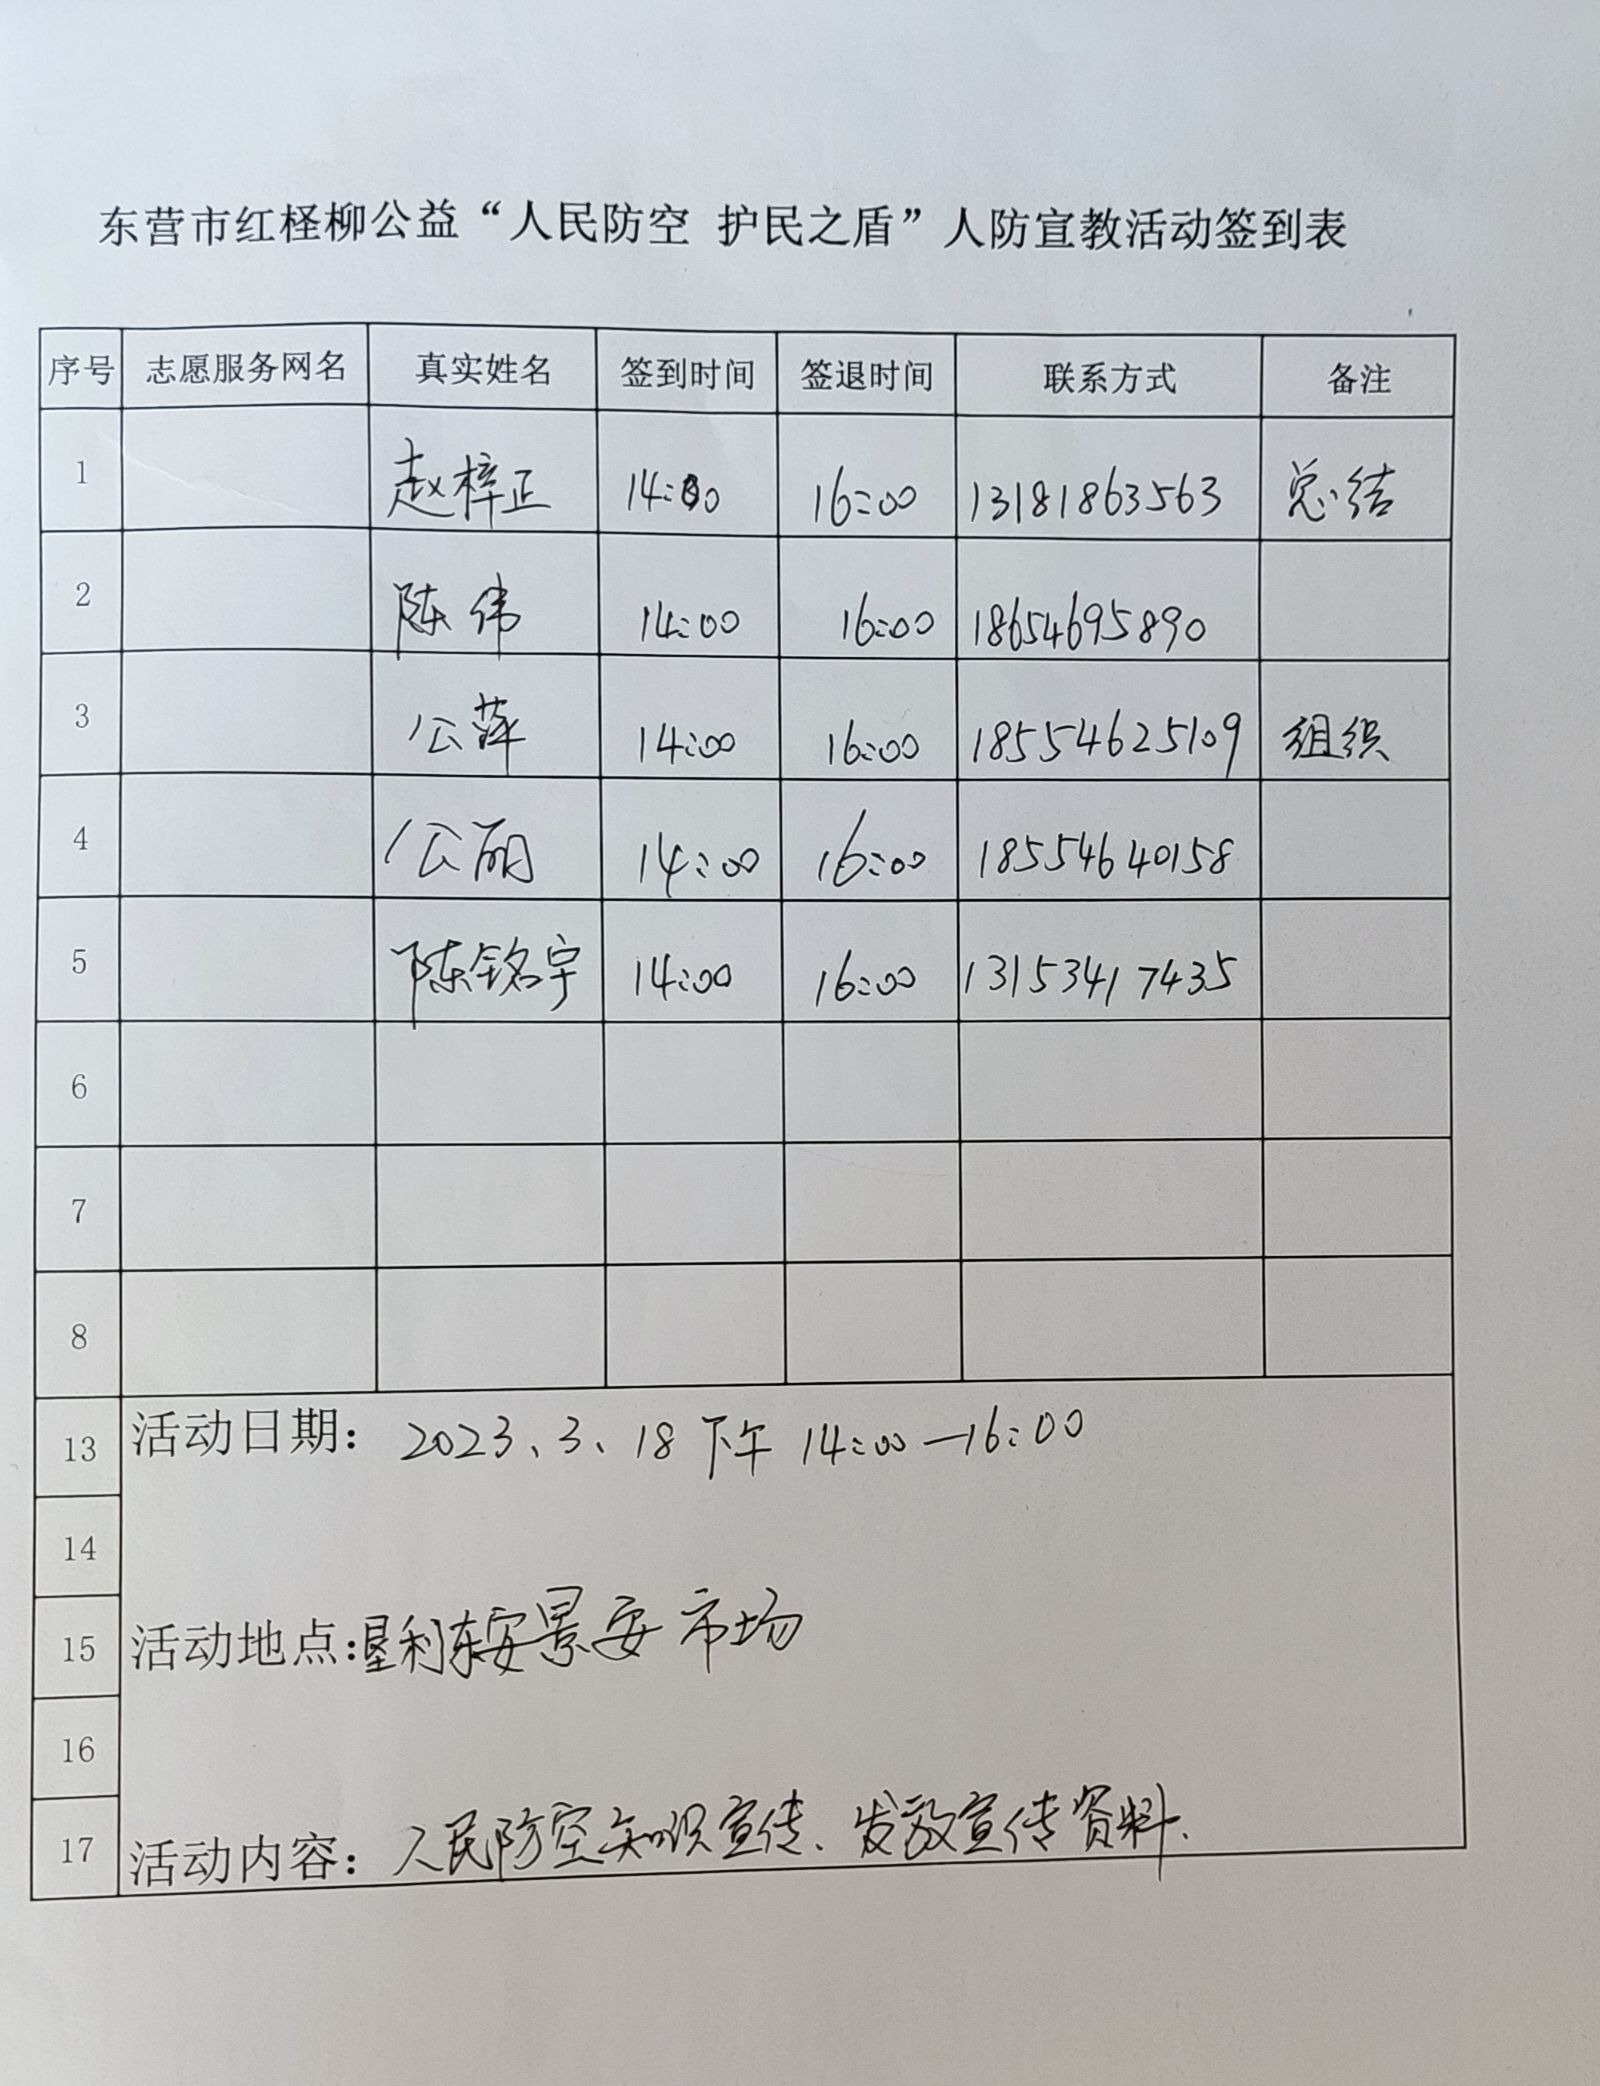 东营市红柽柳公益“人民防空 护民之盾”人防宣教活动签到表
序号 志愿服务网名 真实姓名 签到时间 签退时间 联系方式 备注
1 赵梓正 14:00 16:00 13181863563 总结
2 陈伟 14:00 16:00 18654695890
3 公萍 14:00 16:00 18554625109 组织
4 公丽 14:00 16:00 18554640158
5 陈铭宇 14:00 16:00 13153417435
6
7
8
13 活动日期：2023、3、18 下午 14:00—16:00
14
15 活动地点：垦利东安景安市场
16
17 活动内容：人民防空知识宣传、发放宣传资料.